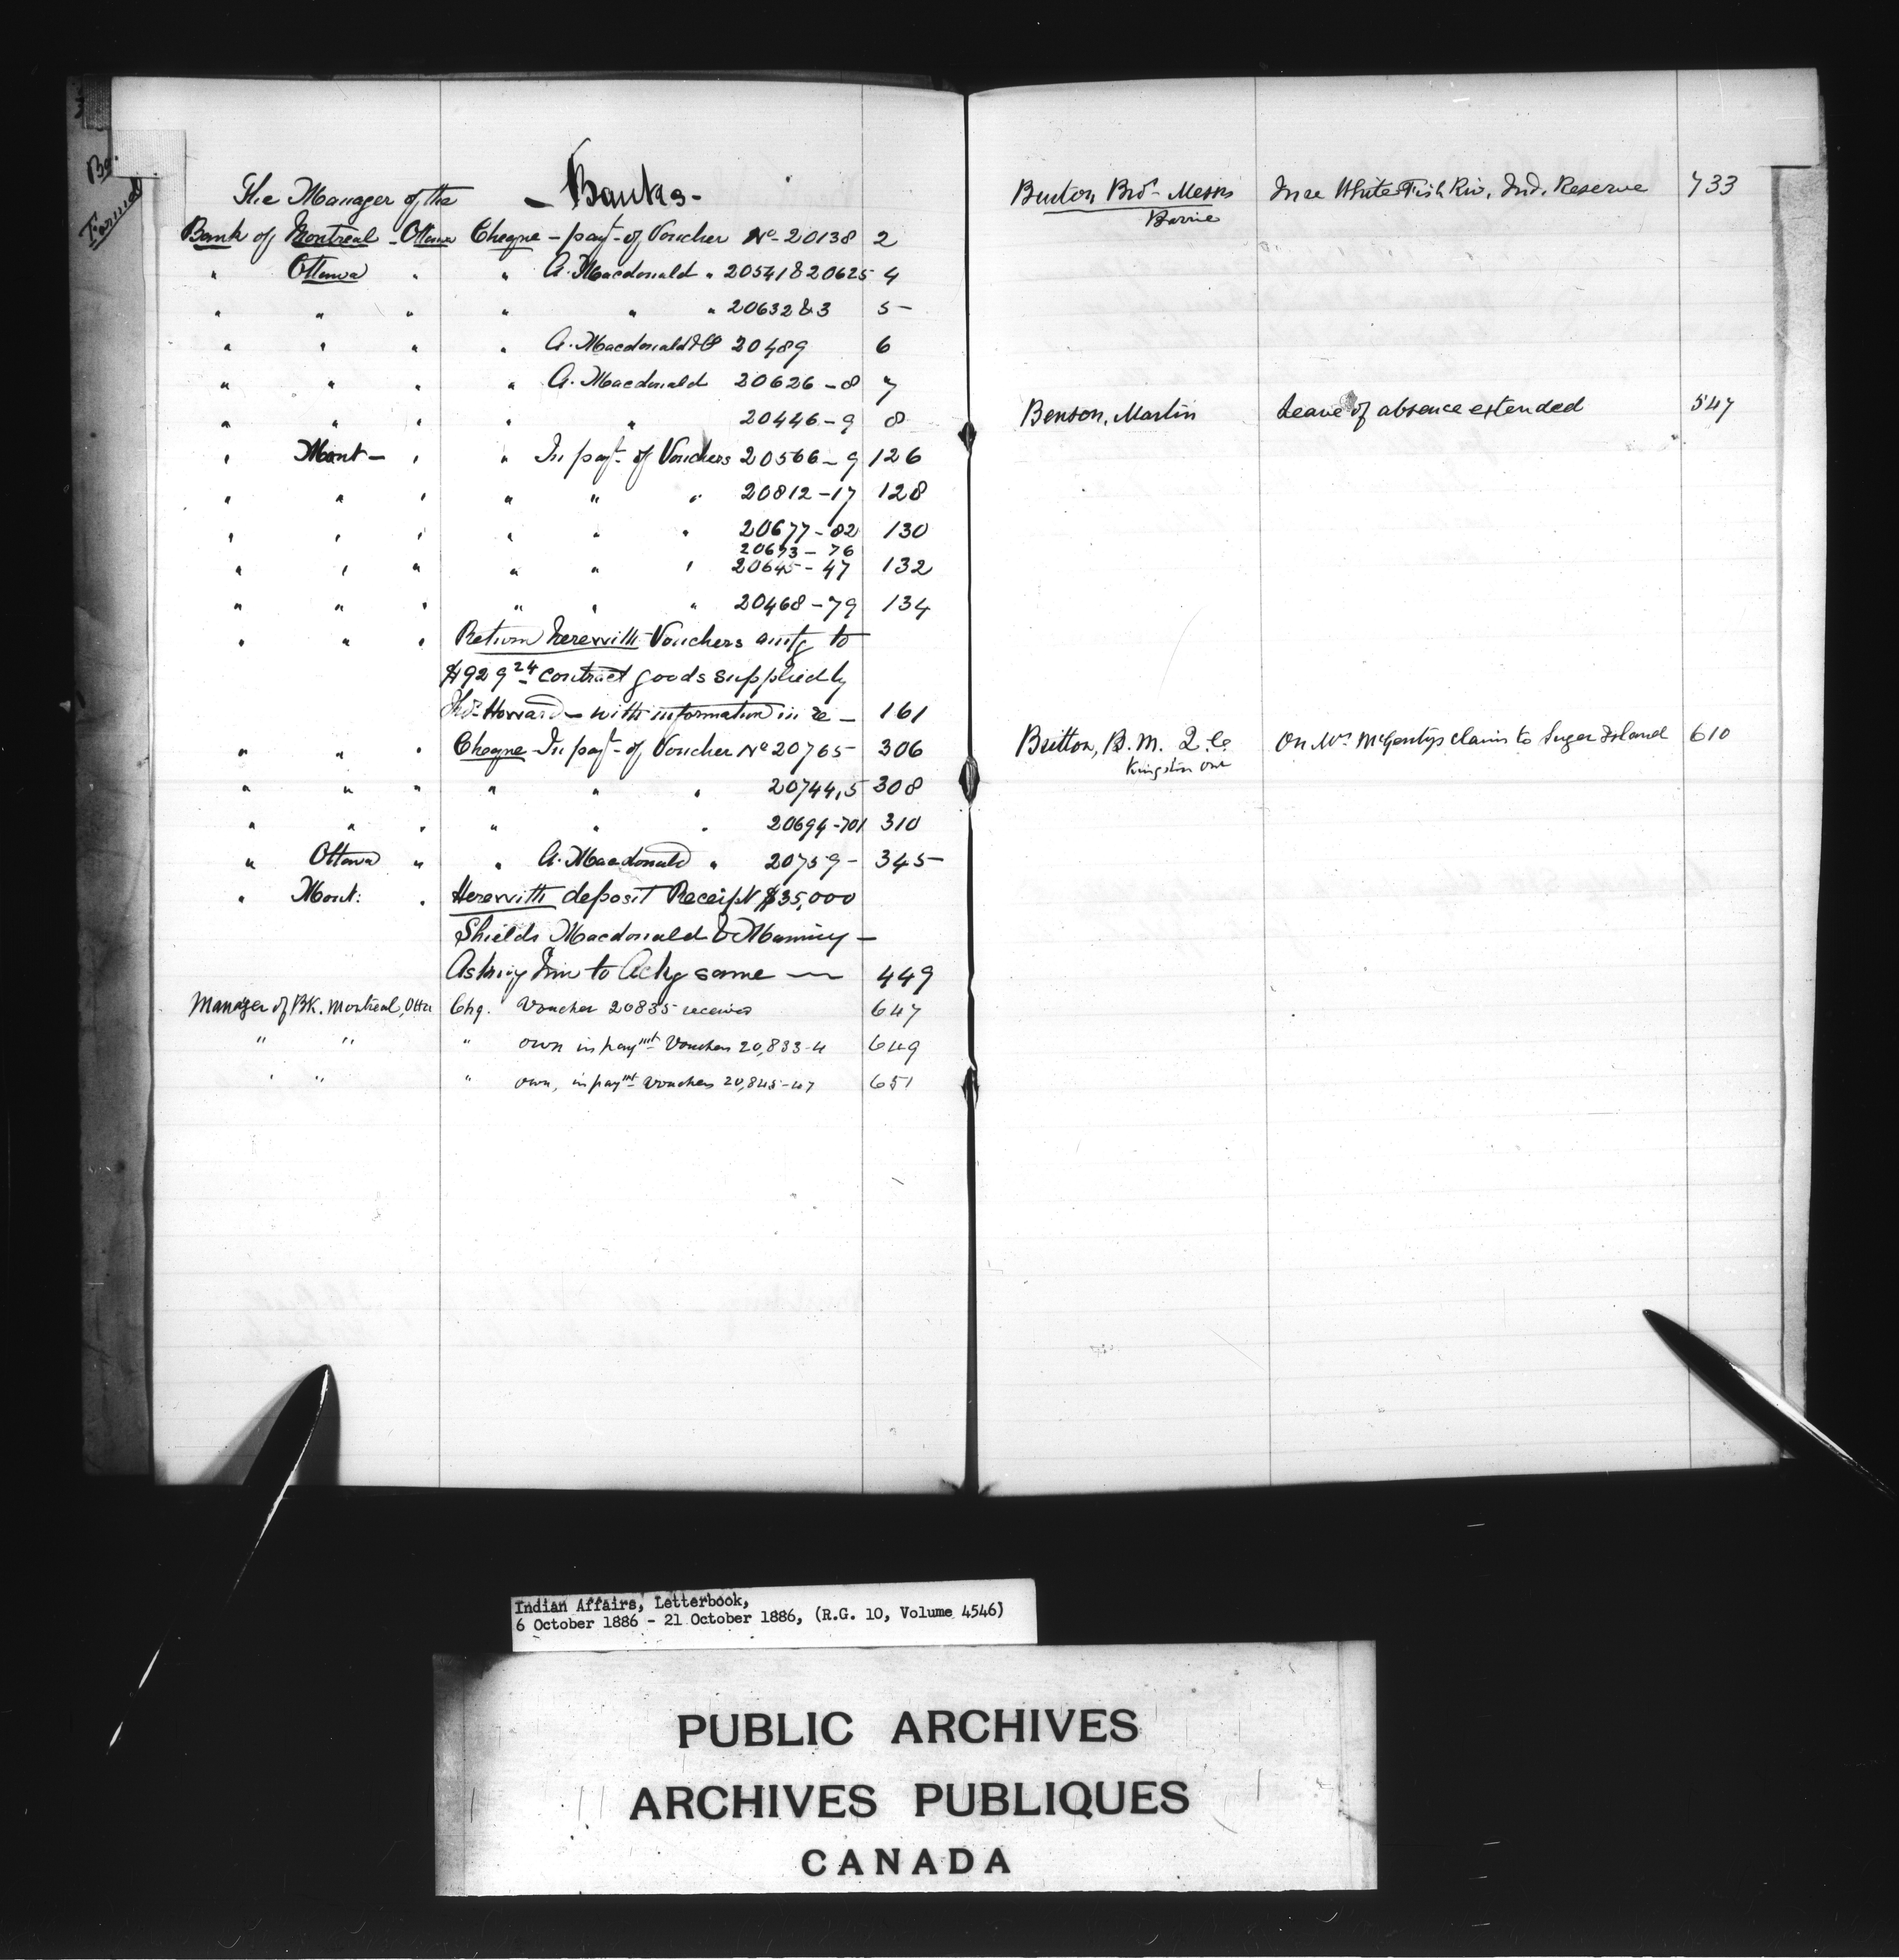 The Manager of the — Banks —
Bank of Montreal - Ottawa Cheque - payt. of Voucher No. 20138 2
" Ottawa " " A. Macdonald " 20541 & 20625 4
" " " " " " 20632 & 3 5 -
" " " " A. Macdonald & Co 20489 6
" " " " A. Macdonald 20626 - 8 7
" " " " " 20446 - 9 8
" Mont - " " In payt. of Vouchers 20566 - 9 126
" " " " " " 20812 - 17 128
" " " " " " 20677 - 82 130
20673 - 76
" " " " " " 20645 - 47 132
" " " " " " 20468 - 79 134
" " " Return herewith Vouchers amtg to
$929 24 contract goods supplied by
Thos. Howard - with information in re - 161
" " " Cheque - In payt. of Voucher No 20765 - 306
" " " " " " 20744,5 308
" " " " " " 20694 - 701 310
" Ottawa " " A. Macdonald " 20759 - 345 -
" Mont: " Herewith deposit Receipt $35,000
Shields Macdonald & Manning -
Asking him to Ackg same — 449
Manager of BK. Montreal, Otta Chq. Voucher 20835 receives 647
" " " own in paymt Vouchers 20,833-4 649
" " " own, in paymt Vouchers 20,845-47 651
Burton, Bros. Messrs In re White Fish Riv. Ind. Reserve 733
Barrie
Benson, Martin Leave of absence extended 547
Britton, B. M. Q.C. On Mr. McGentys claim to Sugar Island 610
Kingston Ont
Indian Affairs, Letterbook,
6 October 1886 - 21 October 1886, (R.G. 10, Volume 4546)
PUBLIC ARCHIVES
ARCHIVES PUBLIQUES
CANADA